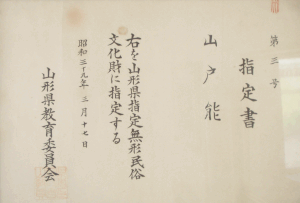 第三号
指定書
山戸能
右を山形県指定無形民俗
文化財に指定する
昭和三十九年 三月十七日
山形県教育委員会